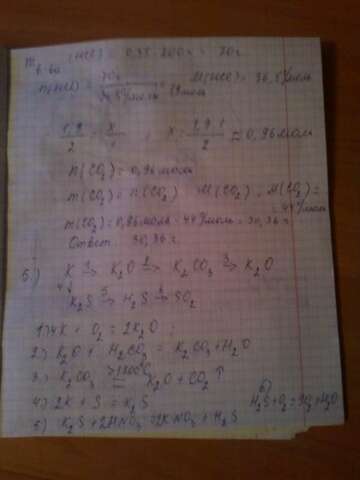 m в-ва (HCl) = 0,35 · 200г = 70г
n(HCl) = 70г / 36,5г/моль = 1,9моль M(HCl) = 36,5г/моль
1,9/2 = x/1 ; x = 1,9·1/2 = 0,96моль
n(CO₂) = 0,96моль
m(CO₂) = n(CO₂) · M(CO₂) M(CO₂) = 44г/моль
m(CO₂) = 0,96моль · 44г/моль = 30,36г.
Ответ: 30,36г.
5) K ¹→ K₂O ²→ K₂CO₃ ³→ K₂O
4↓ K₂S ⁵→ H₂S ⁶→ SO₂
1) 4K + O₂ = 2K₂O ;
2) K₂O + H₂CO₃ = K₂CO₃ + H₂O
3) K₂CO₃ = K₂O + CO₂ ↑
4) 2K + S = K₂S
5) K₂S + 2HNO₃ = 2KNO₃ + H₂S
6) H₂S + O₂ = SO₂ + H₂O